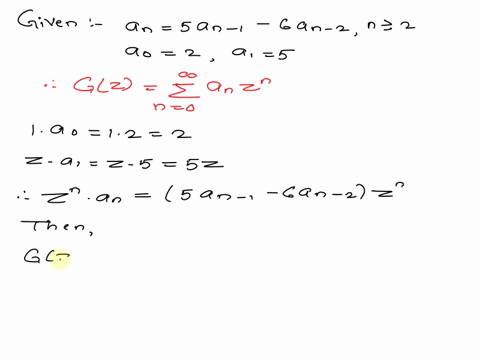 Given :- aₙ = 5aₙ₋₁ - 6aₙ₋₂, n ≥ 2
a₀ = 2, a₁ = 5
∴ G(z) = ∑_{n=0}^{∞} aₙ zⁿ
1. a₀ = 1.2 = 2
z. a₁ = z.5 = 5z
∴ zⁿ. aₙ = (5aₙ₋₁ - 6aₙ₋₂) zⁿ
Then,
G(z